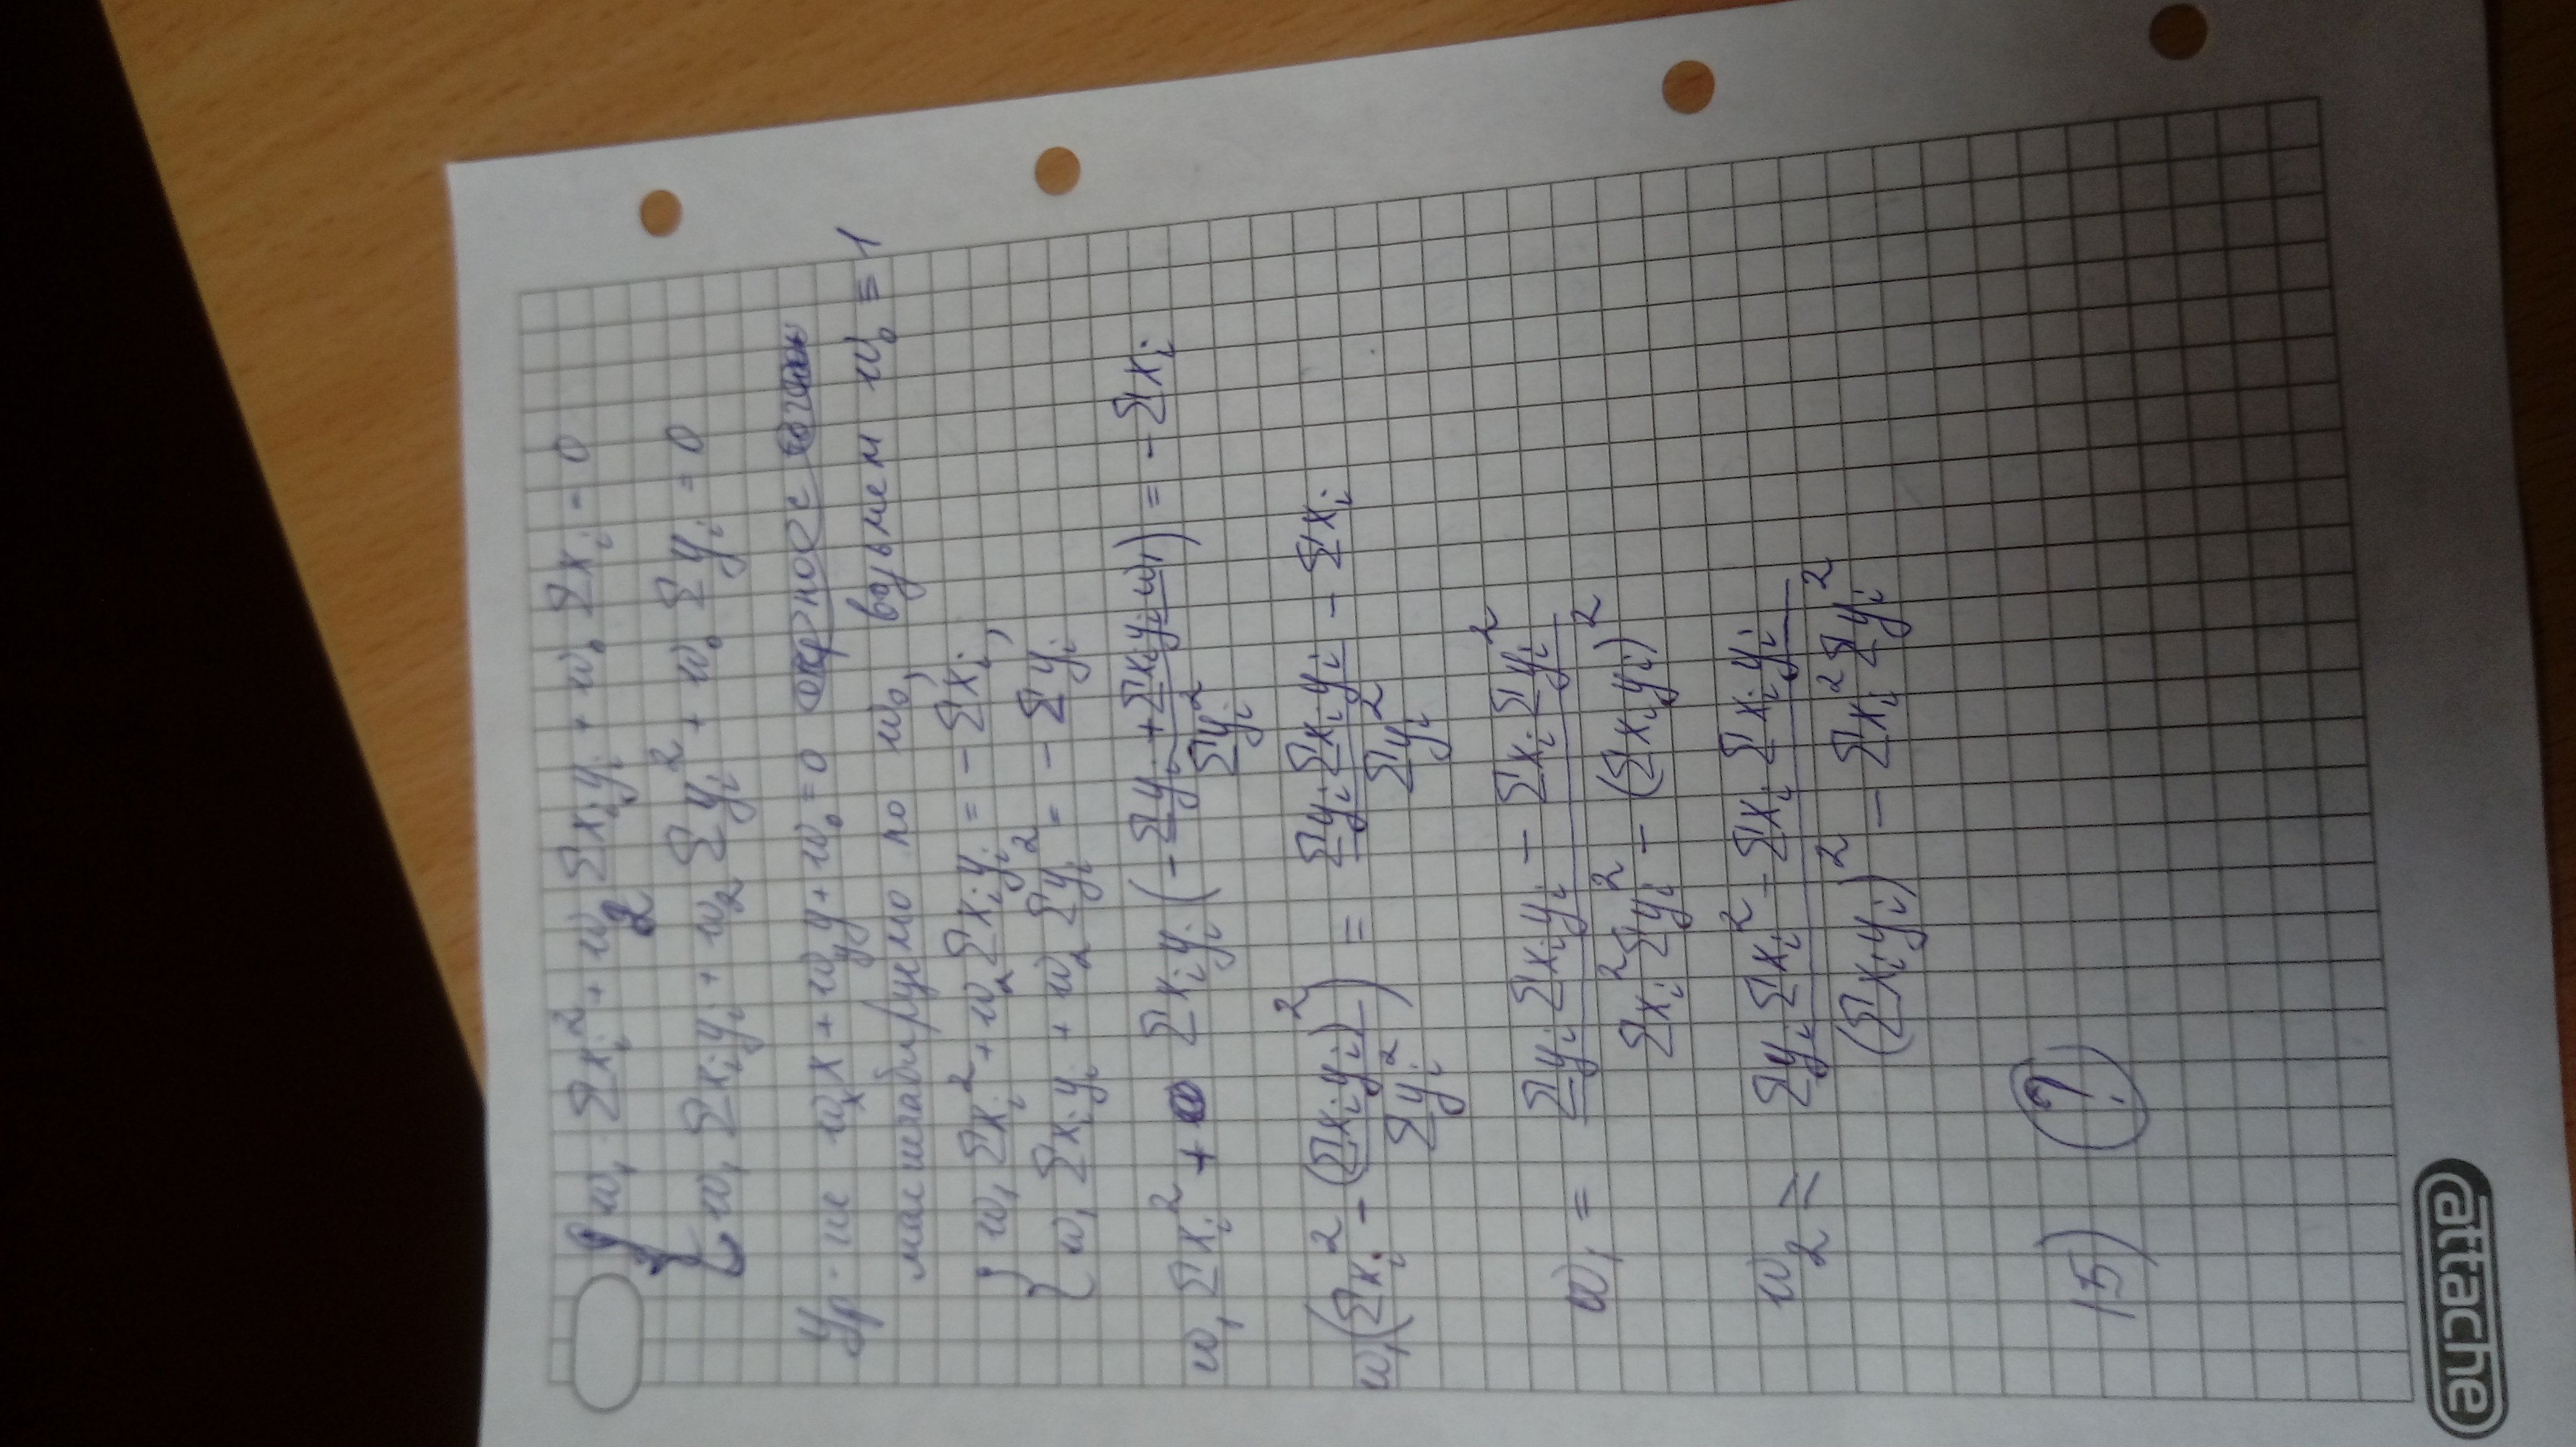 { w₁ Σxᵢ² + w₂ Σxᵢyᵢ + w₀ Σxᵢ = 0
w₁ Σxᵢyᵢ + w₂ Σyᵢ² + w₀ Σyᵢ = 0
Ур-ие wₓx + w_y y + w₀ = 0
масштабируемо по w₀, возьмем w₀ ≡ 1
{ w₁ Σxᵢ² + w₂ Σxᵢyᵢ = - Σxᵢ,
w₁ Σxᵢyᵢ + w₂ Σyᵢ² = - Σyᵢ
w₁ Σxᵢ² + Σxᵢyᵢ (- (Σyᵢ + Σxᵢyᵢ w₁) / Σyᵢ²) = - Σxᵢ
w₁ (Σxᵢ² - (Σxᵢyᵢ)² / Σyᵢ²) = Σyᵢ Σxᵢyᵢ / Σyᵢ² - Σxᵢ
w₁ = (Σyᵢ Σxᵢyᵢ - Σxᵢ Σyᵢ²) / (Σxᵢ² Σyᵢ² - (Σxᵢyᵢ)²)
w₂ = (Σyᵢ Σxᵢ² - Σxᵢ Σxᵢyᵢ) / ((Σxᵢyᵢ)² - Σxᵢ² Σyᵢ²)
15) ?
attache